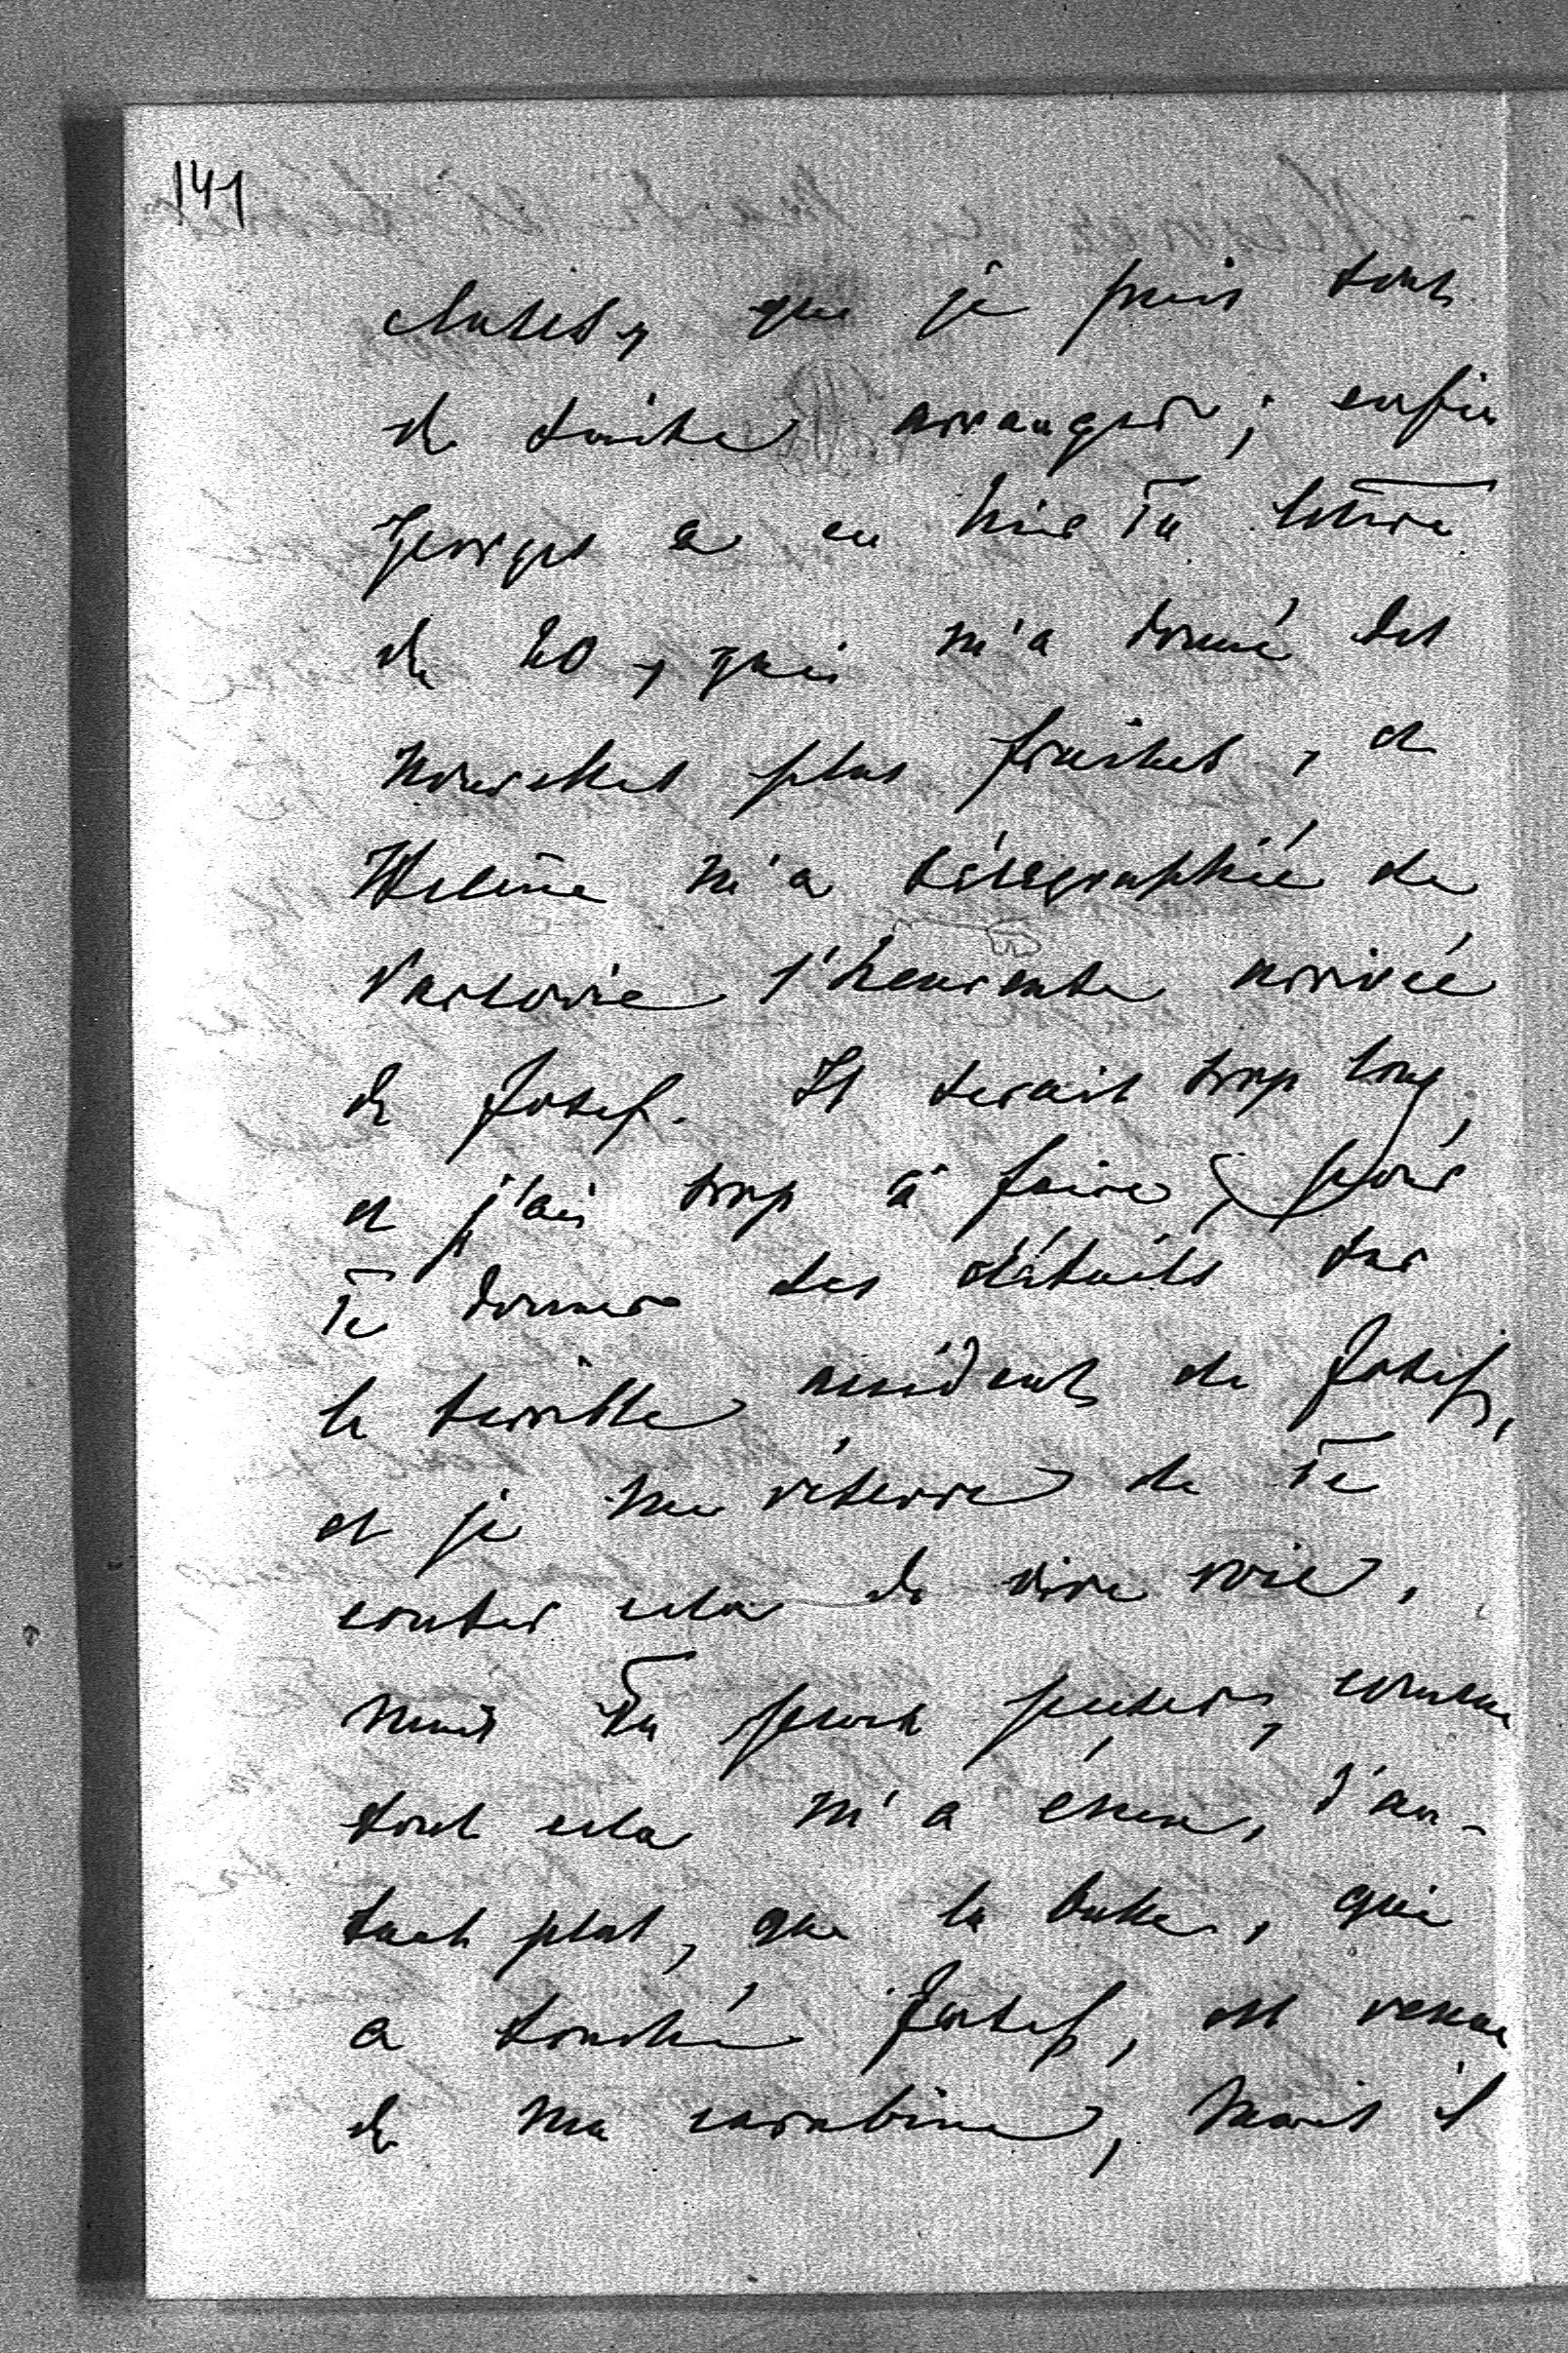 141
choses, que je puis tout
de suite arranger; enfin
Georges a eu hier Ta lettre
de 20, qui m'a donné des
nouvelles plus fraiches, et
Hélène m'a télégraphié de
Varsovie l'heureuse arrivée
de Josef. Il serait trop long,
et j'ai trop à faire, pour
Te donner des détails sur
le terrible accident de Josef,
et je me réserve de Te
conter cela de vive voix,
mais Tu peux penser, comme
tout cela m'a ému, d'au-
tant plus, que la balle, qui
a touché Josef, est venue
de ma carabine, mais il